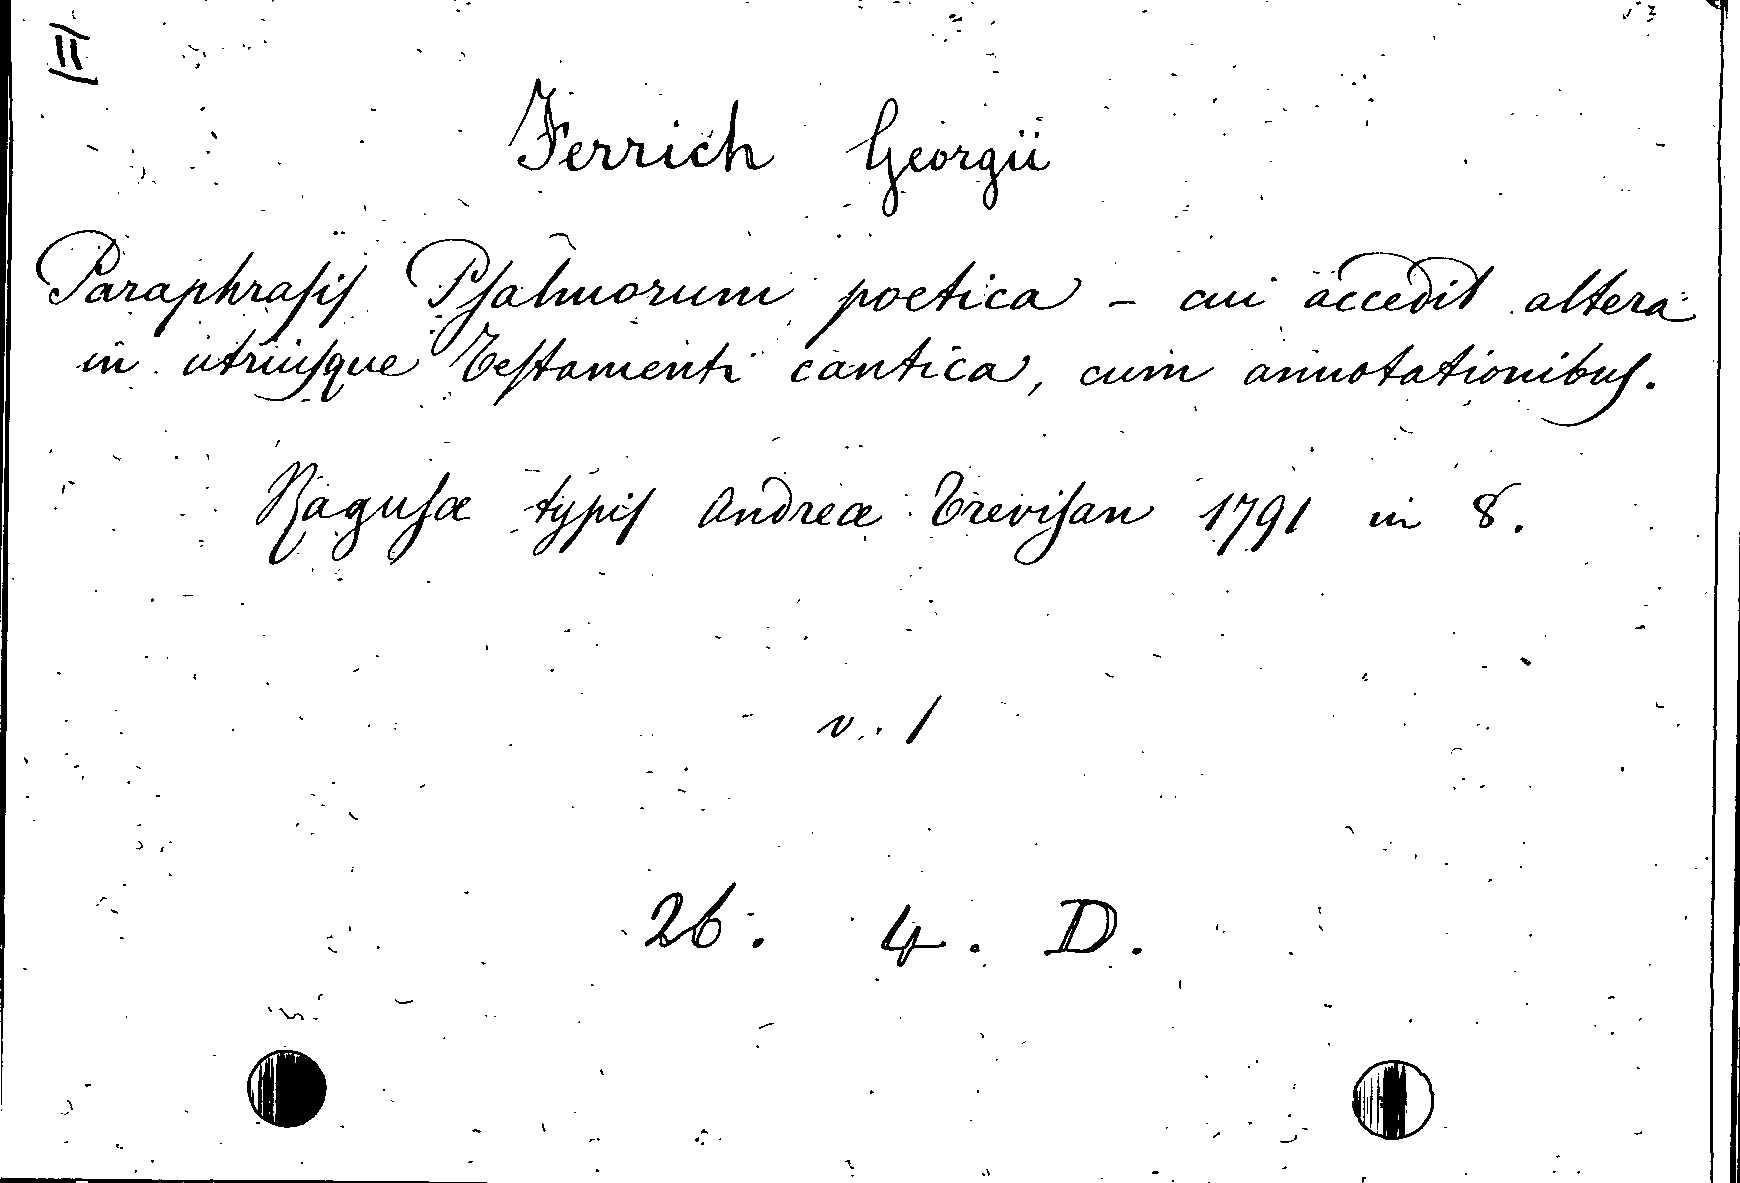 Ferrich Georgii
Paraphrasis Psalmorum poetica - cui accedit altera
in utriusque Testamenti cantica, cum annotationibus.
Ragusæ typis Andreæ Trevisan 1791 in 8.
v. 1
26. 4. D.